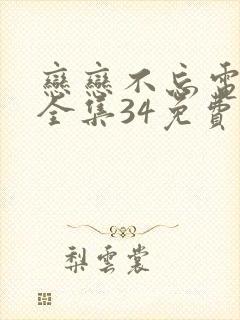 戀戀不忘電
全集34免費
梨雲裳